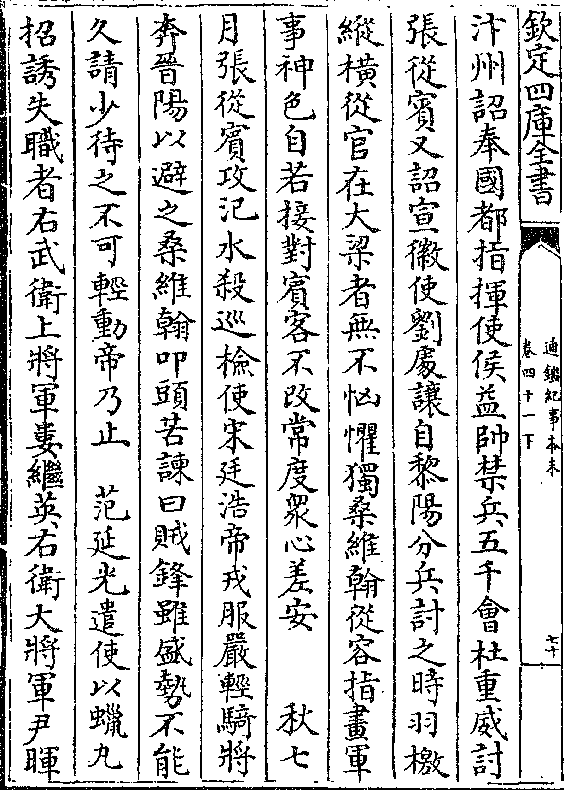 欽定四庫全書
通鑑紀事本末
卷四十一下
七十
汴州詔奉國都指揮使侯益帥禁兵五千會杜重威討
張從賓又詔宣徽使劉處讓自黎陽分兵討之時羽檄
縱橫從官在大梁者無不恟懼獨桑維翰從容指畫軍
事神色自若接對賓客不改常度衆心差安　秋七
月張從賓攻汜水殺巡檢使宋廷浩帝戎服嚴輕騎將
奔晉陽以避之桑維翰叩頭苦諫曰賊鋒雖盛勢不能
久請少待之不可輕動帝乃止　范延光遣使以蠟丸
招誘失職者右武衛上將軍婁繼英右衛大將軍尹暉